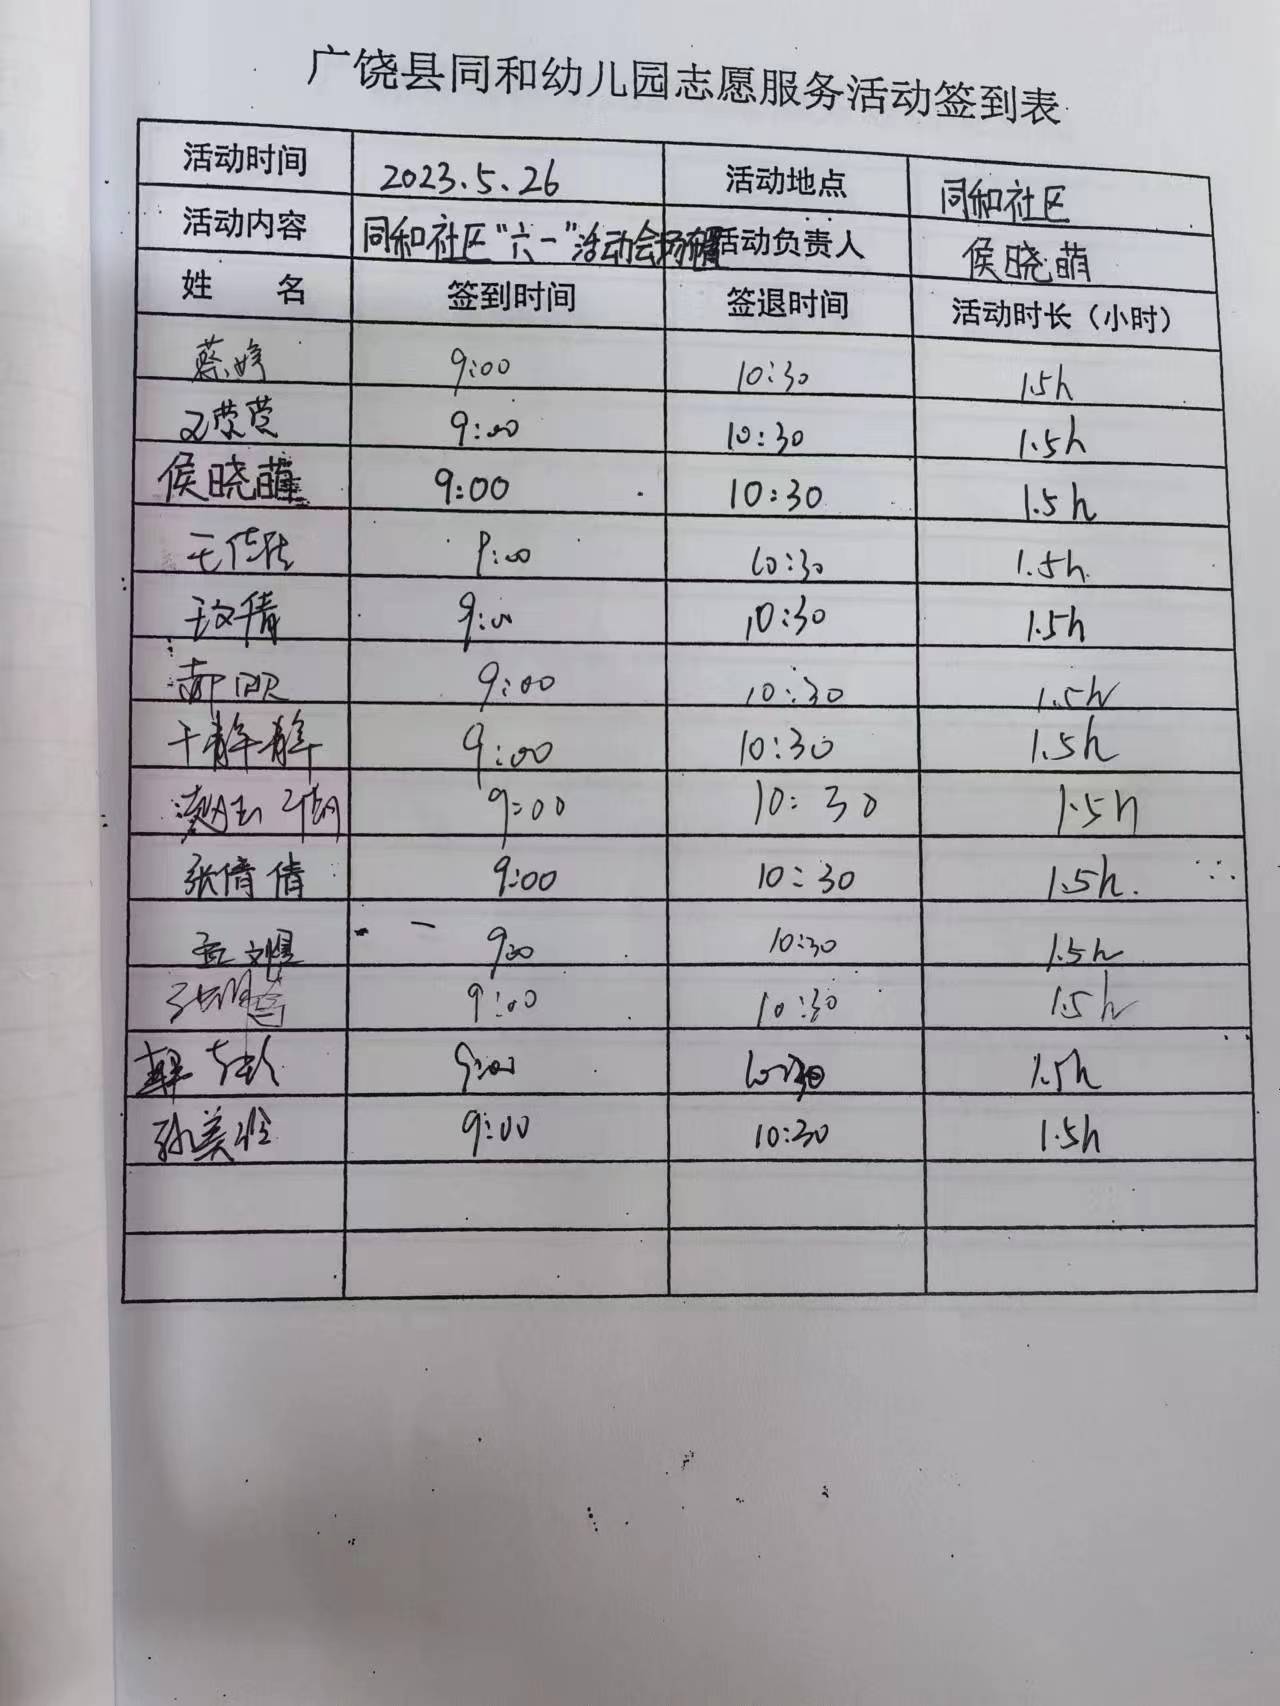 广饶县同和幼儿园志愿服务活动签到表
活动时间 2023.5.26 活动地点 同和社区
活动内容 同和社区“六一”活动会场布置 活动负责人 侯晓萌
姓 名 签到时间 签退时间 活动时长（小时）
蔡婷 9:00 10:30 1.5h
荣荣 9:00 10:30 1.5h
侯晓萌 9:00 10:30 1.5h
9:00 10:30 1.5h.
王文倩 9:00 10:30 1.5h
9:00 10:30 1.5h
静静 9:00 10:30 1.5h
赵玉 9:00 10:30 1.5h
张倩倩 9:00 10:30 1.5h.
9:00 10:30 1.5h
9:00 10:30 1.5h
9:00 10:30 1.5h
孙美玲 9:00 10:30 1.5h